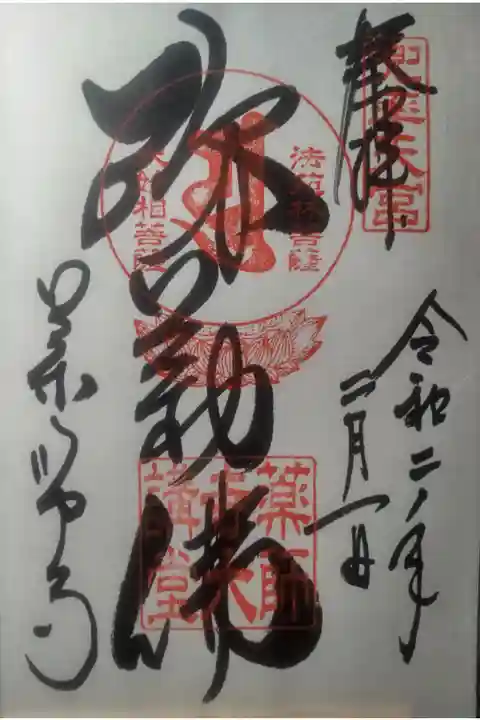 奉拝
兜率天宮
令和二年
二月一日
弥勒佛
法苑林菩薩
大妙相菩薩
薬師寺大講堂
薬師寺